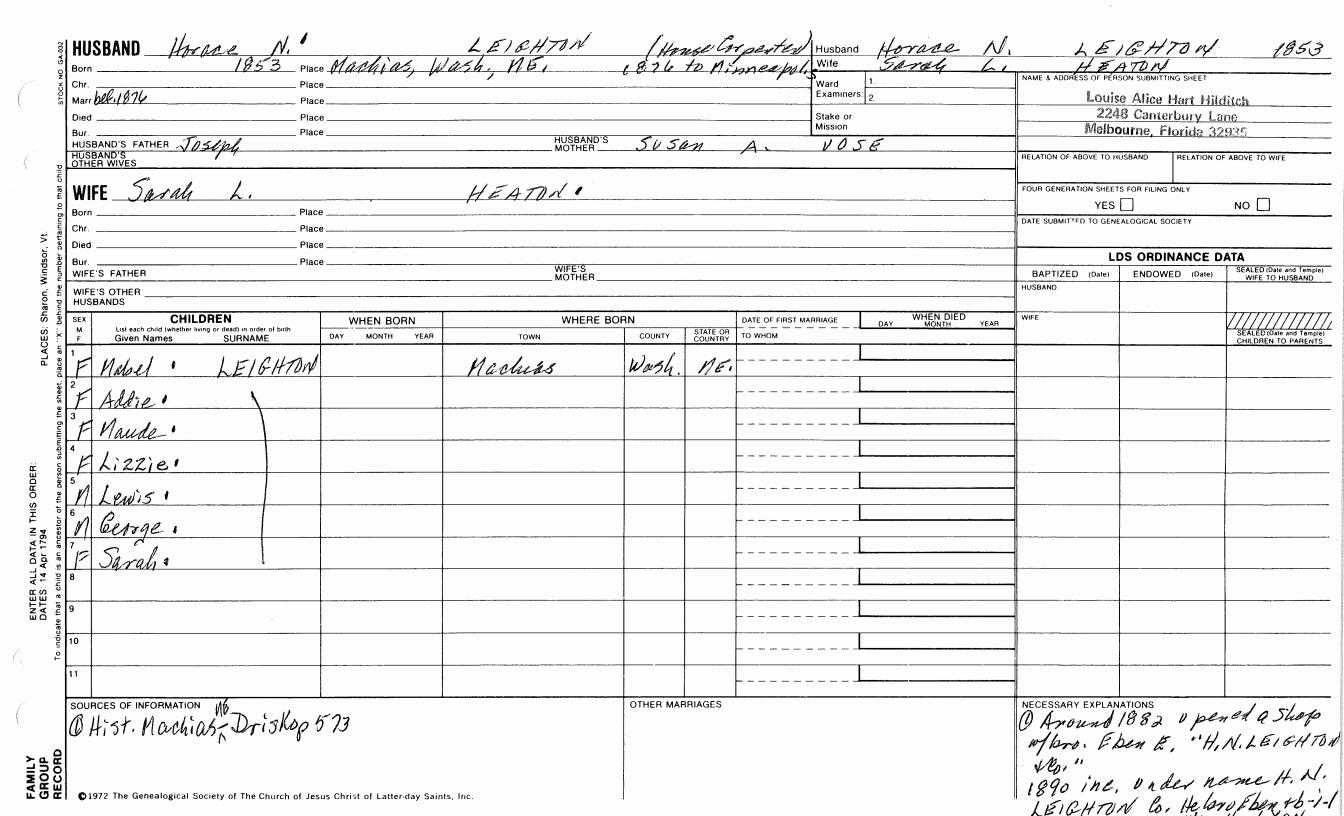 HUSBAND Horace N. LEIGHTON (House Carpenter)
Born 1853 Place Machias, Wash, ME. 1876 to Minneapolis
Chr. Place
Marr bef. 1876 Place
Died Place
Bur. Place
HUSBAND'S FATHER Joseph HUSBAND'S MOTHER SUSAN A. VOSE
HUSBAND'S OTHER WIVES
Husband Horace N. LEIGHTON 1853
Wife Sarah L. HEATON
Ward Examiners: 1. 2.
Stake or Mission
NAME & ADDRESS OF PERSON SUBMITTING SHEET
Louise Alice Hart Hilditch
2248 Canterbury Lane
Melbourne, Florida 32935
RELATION OF ABOVE TO HUSBAND RELATION OF ABOVE TO WIFE
FOUR GENERATION SHEETS FOR FILING ONLY
YES NO
DATE SUBMITTED TO GENEALOGICAL SOCIETY
WIFE Sarah L. HEATON
Born Place
Chr. Place
Died Place
Bur. Place
WIFE'S FATHER WIFE'S MOTHER
WIFE'S OTHER HUSBANDS
LDS ORDINANCE DATA
BAPTIZED (Date) ENDOWED (Date) SEALED (Date and Temple) WIFE TO HUSBAND
HUSBAND
WIFE
SEALED (Date and Temple) CHILDREN TO PARENTS
SEX M F CHILDREN WHEN BORN WHERE BORN DATE OF FIRST MARRIAGE WHEN DIED
List each child (whether living or dead) in order of birth
Given Names SURNAME DAY MONTH YEAR TOWN COUNTY STATE OR COUNTRY TO WHOM DAY MONTH YEAR
1 F Mabel LEIGHTON Machias Wash. ME.
2 F Addie
3 F Maude
4 F Lizzie
5 M Lewis
6 M George
7 F Sarah
8
9
10
11
SOURCES OF INFORMATION
① Hist. Machias - Drisko p 573
OTHER MARRIAGES
NECESSARY EXPLANATIONS
① Around 1882 opened a shop
w/bro. Eben E. "H.N. LEIGHTON
& Co."
1890 inc. under name H. N.
LEIGHTON Co. He, bro Eben + b-i-l
©1972 The Genealogical Society of The Church of Jesus Christ of Latter-day Saints, Inc.
STOCK NO. GA-032
To indicate that a child is an ancestor of the person submitting the sheet, place an "X" behind the number pertaining to that child
PLACES: Sharon, Windsor, Vt.
ENTER ALL DATA IN THIS ORDER:
DATES: 14 Apr 1794
FAMILY GROUP RECORD